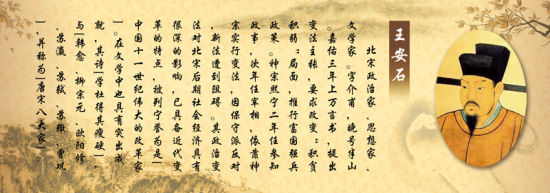 王安石
北宋政治家、思想家、
文学家。字介甫，晚号半山
。嘉佑三年上万言书，提出
变法主张，要求改变“积贫
积弱”局面，推行富国强兵
政策。神宗熙宁二年任参知
政事，次年任宰相，依靠神
宗实行变法，因保守派反对
，新法遭到阻碍。其政治变
法对北宋后期社会经济具有
很深的影响，已具备近代变
革的特点，被列宁誉为是“
中国十一世纪伟大的改革家
”。在文学中也具有突出成
就，其诗“学杜得其瘦硬”，
与“韩愈、柳宗元、欧阳修
、苏洵、苏轼、苏辙、曾巩
”，并称为“唐宋八大家”。